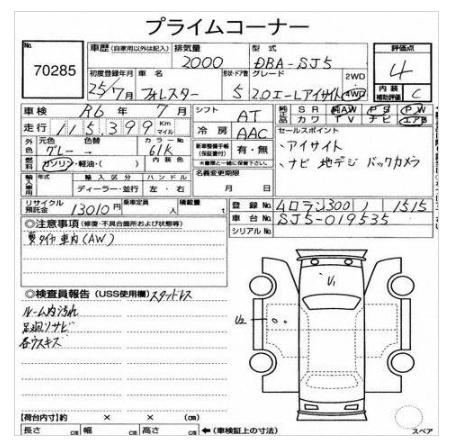 プライムコーナー
No. 70285
車歴 (自家用以外は記入) 排気量 2000 型式 DBA-SJ5 評価点 4
初度登録年月 25/7月 車名 フォレスター 形状・ドア数 5 グレード 2.0エールアイサイト 2WD 4WD 内装補助評価 C
車検 R6年 7月 シフト AT 純正品 SR 純AW PS PW カワ TV ナビ エアB
走行 115,399 Km マイル 冷房 AAC セールスポイント
外色 元色 グレー 色替 カラーNo. 61K 新車整備手帳(保証書付) 有・無 ・アイサイト
燃料 ガソリン・軽油・( ) 内装色 ・ナビ 地デジ バックカメラ
輸入車用 年式 輸入区分 ディーラー・並行 ハンドル 左・右 名義変更期限 月 日
リサイクル預託金 13010円 乗車定員 人 積載量 t 登録No. 300 1515
車台No. SJ5-019535
シリアルNo.
◎注意事項 (修復・不具合箇所および状態等)
夏タイヤ車内(AW)
◎検査員報告 (USS使用欄) スタットレス
ルーム内汚れ
足廻リサビ
各ウスキズ
U1
U2
【荷台内寸】約 × × (cm)
長さ cm 幅 cm 高さ cm ←(車検証上の寸法)
スペア